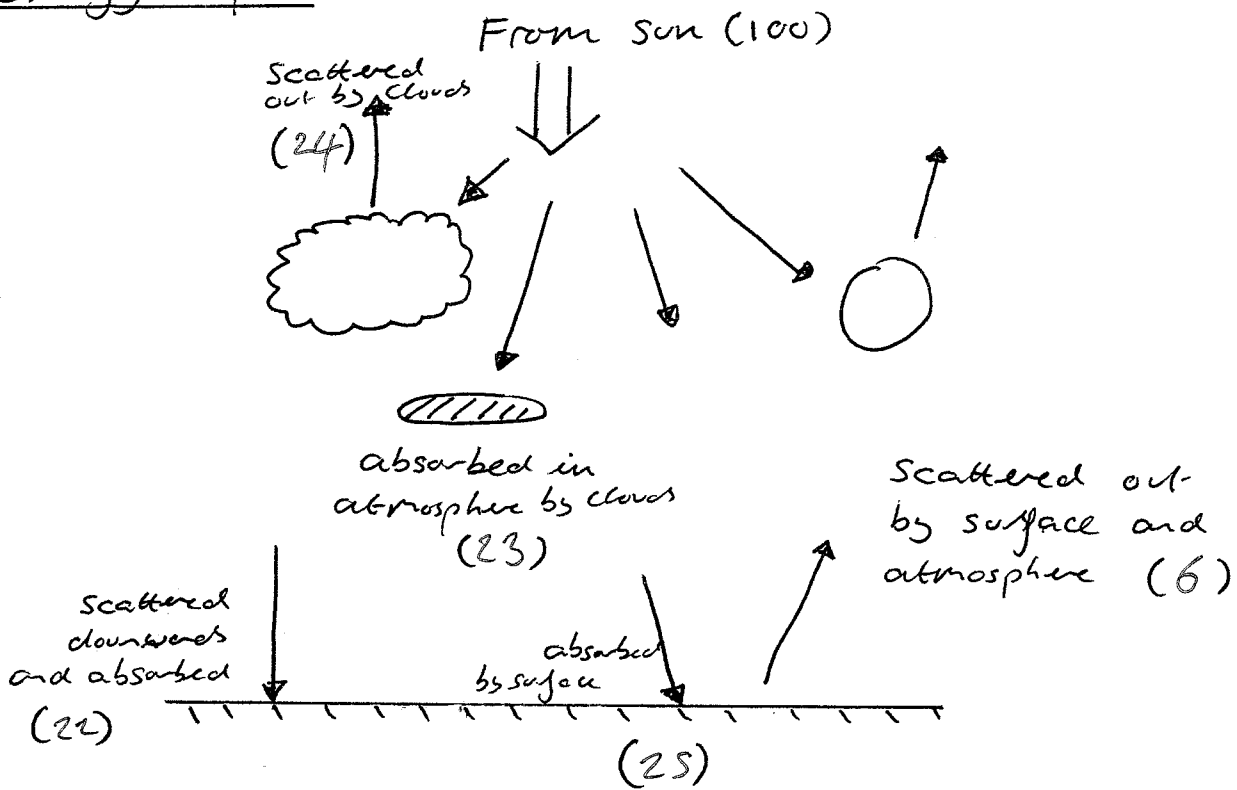 From Sun (100)
Scattered
out by Clouds
(24)
absorbed in
atmosphere by clouds
(23)
Scattered out
by surface and
atmosphere (6)
Scattered
downwards
and absorbed
(22)
absorbed
by surface
(25)